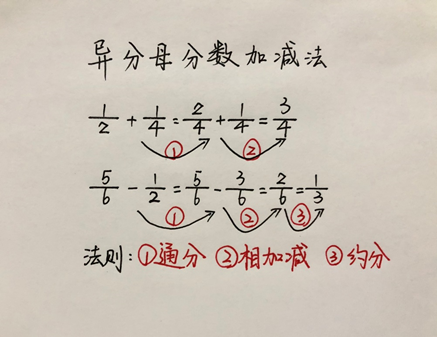 异分母分数加减法
1/2 + 1/4 = 2/4 + 1/4 = 3/4
① ②
5/6 - 1/2 = 5/6 - 3/6 = 2/6 = 1/3
① ② ③
法则:①通分 ②相加减 ③约分